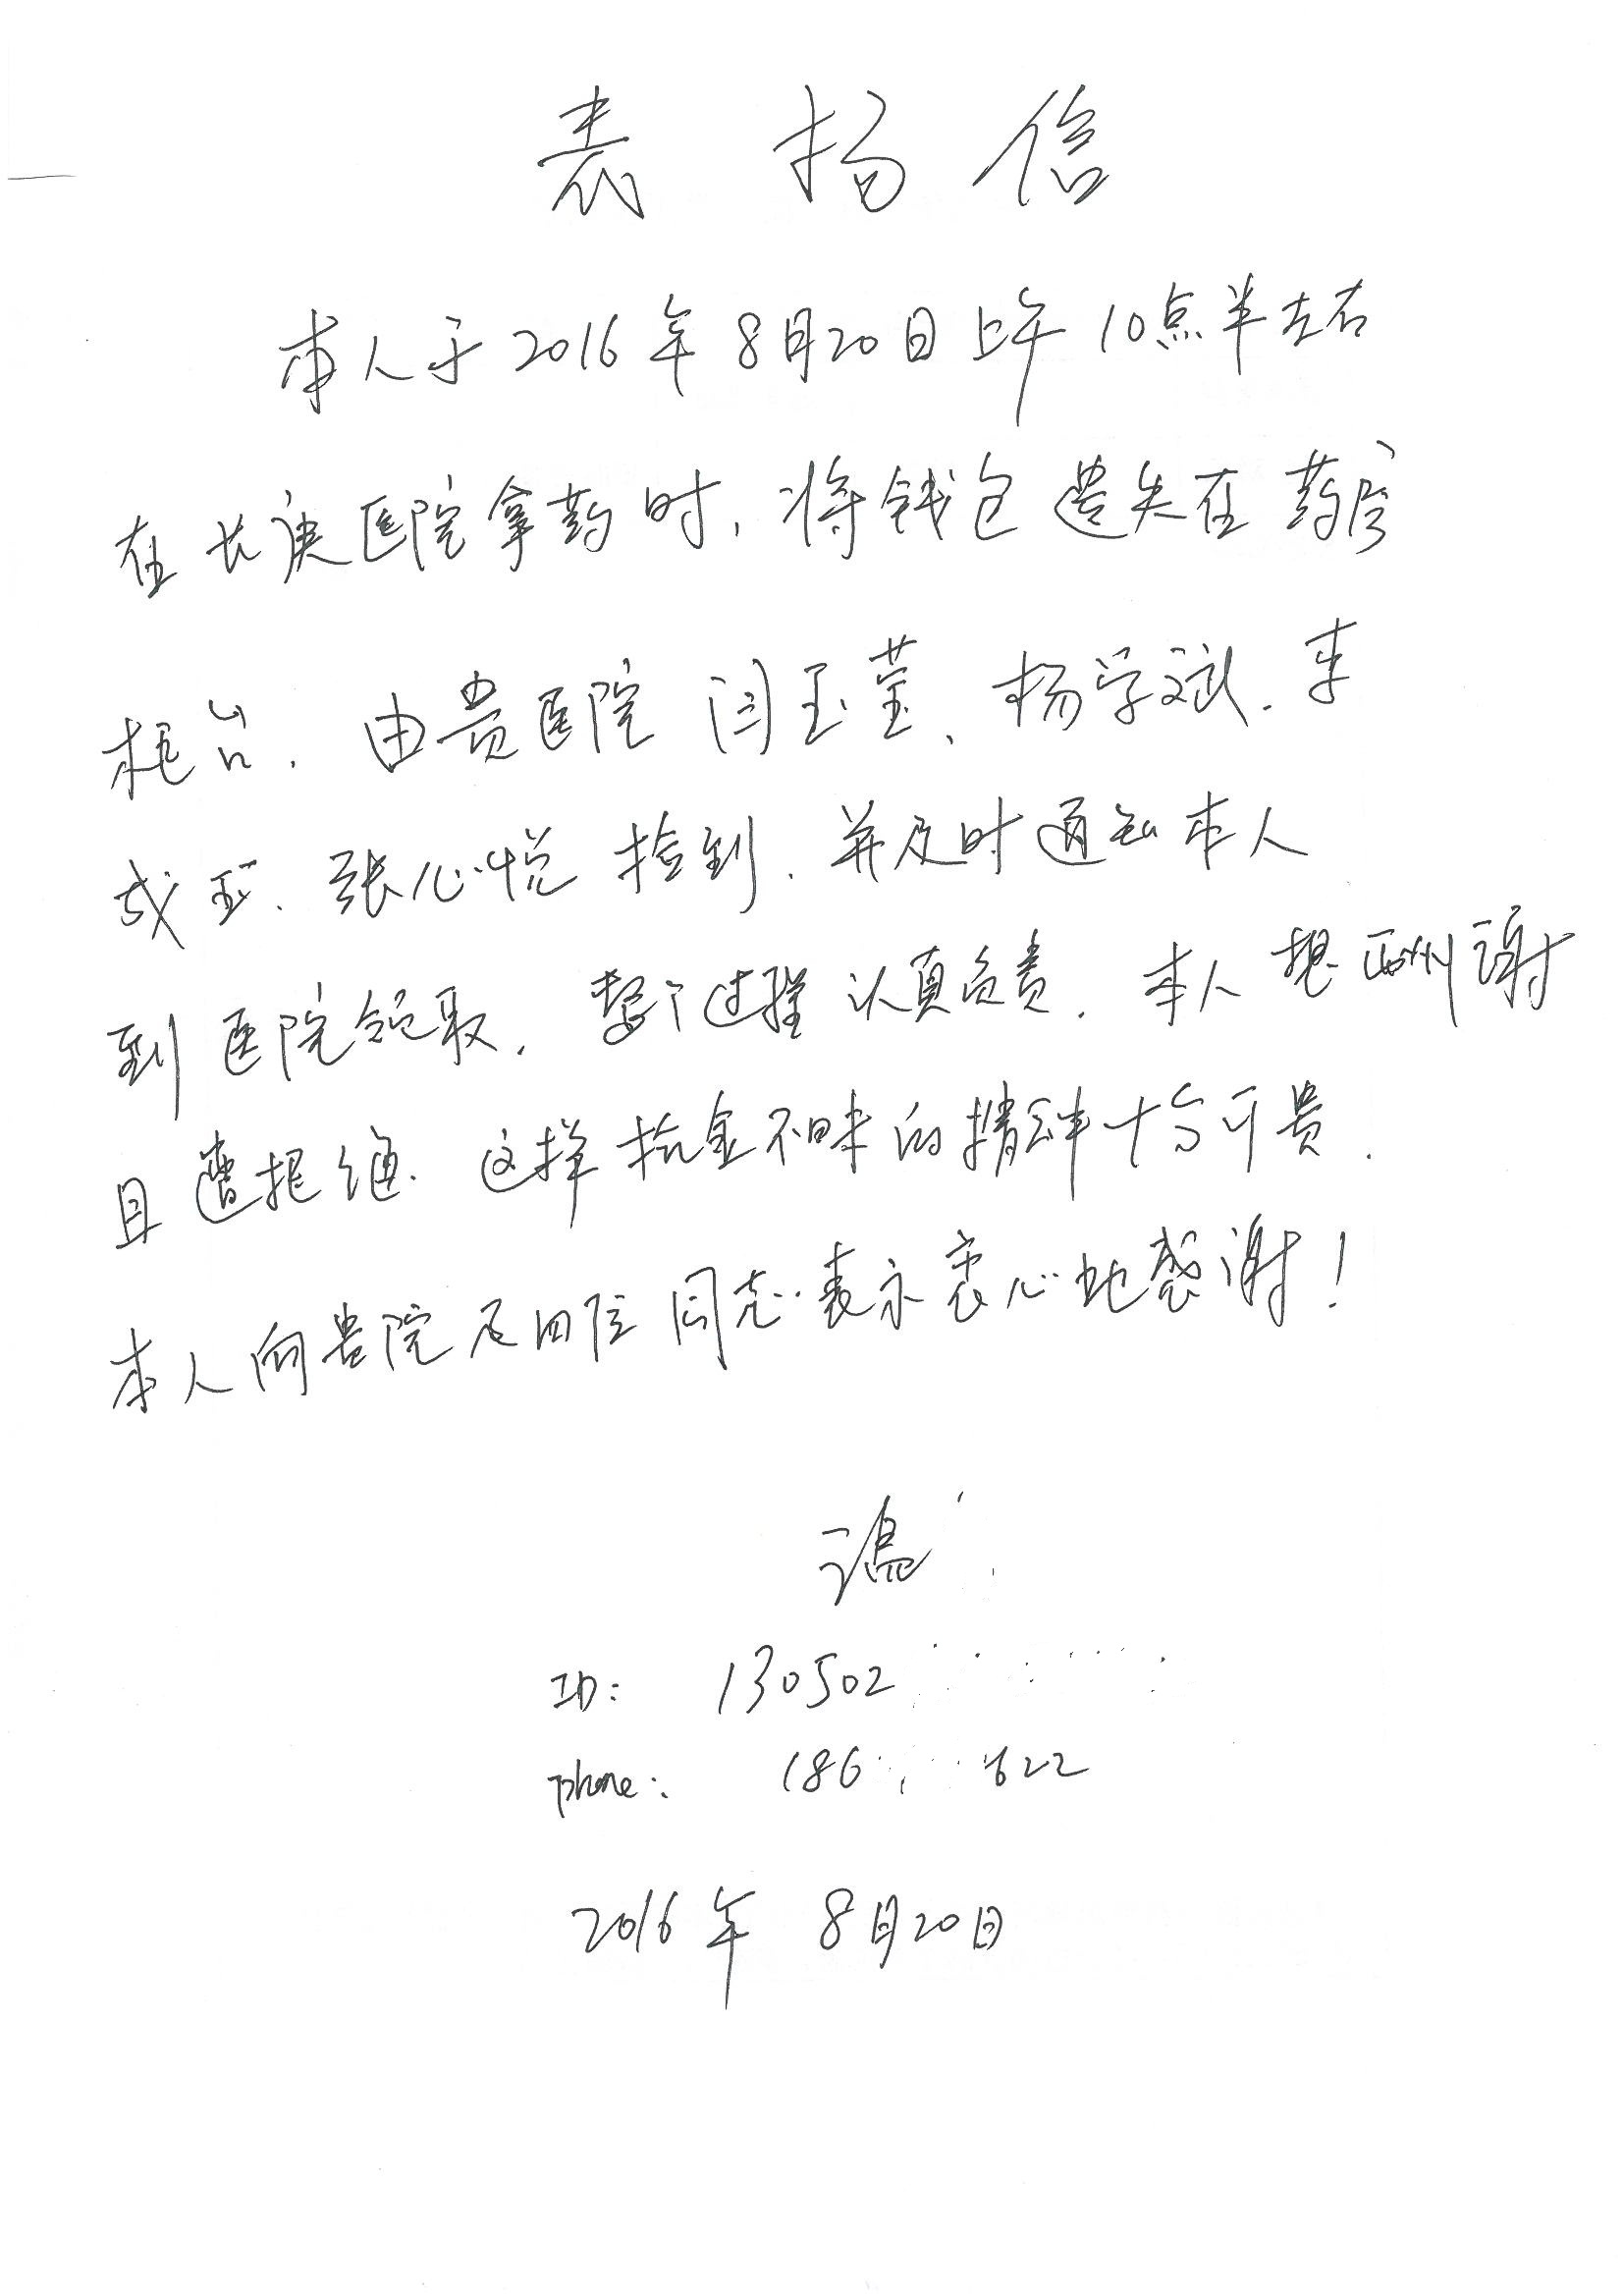 表扬信
本人于2016年8月20日上午10点半左右
在长庚医院拿药时,将钱包遗失在药房
柜台.由贵医院闫玉莹、杨学斌.李
成玉.张心悦捡到.并及时通知本人
到医院领取.整个过程认真负责.本人想酬谢
且遭拒绝.这样拾金不昧的精神十分可贵.
本人向贵院及四位同志表示衷心地感谢!
ID: 130502
phone: 186 622
2016年 8月20日